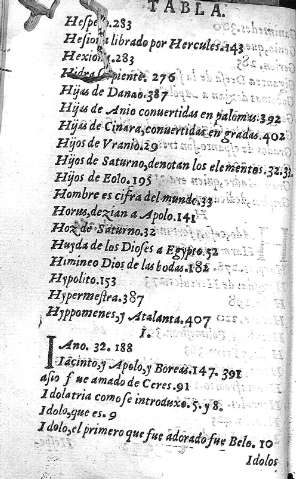 TABLA.
Hespero.283
Hesiona librado por Hercules.143
Hexiona.283
Hidra serpiente. 276
Hijas de Danao.387
Hijas de Anio conuertidas en palomas.392
Hijas de Cinara, conuertidas en gradas.402
Hijos de Vranio.29
Hijos de Saturno, denotan los elementos.32.
Hijos de Eolo.195
Hombre es cifra del mundo.33
Horus, dezian a Apolo.141
Hoz de Saturno.32
Huyda de los Dioses a Egypto.52
Himineo Dios de las bodas.182
Hypolito.153
Hypermestra.387
Hyppomenes, y Atalanta.407
I.
IAno. 32. 188
Iacinto, y Apolo, y Boreas.147. 391
asio fue amado de Ceres.91
Idolatria como se introduxo.5. y 8.
Idolo, que es. 9
Idolo, el primero que fue adorado fue Belo. 10
Idolos